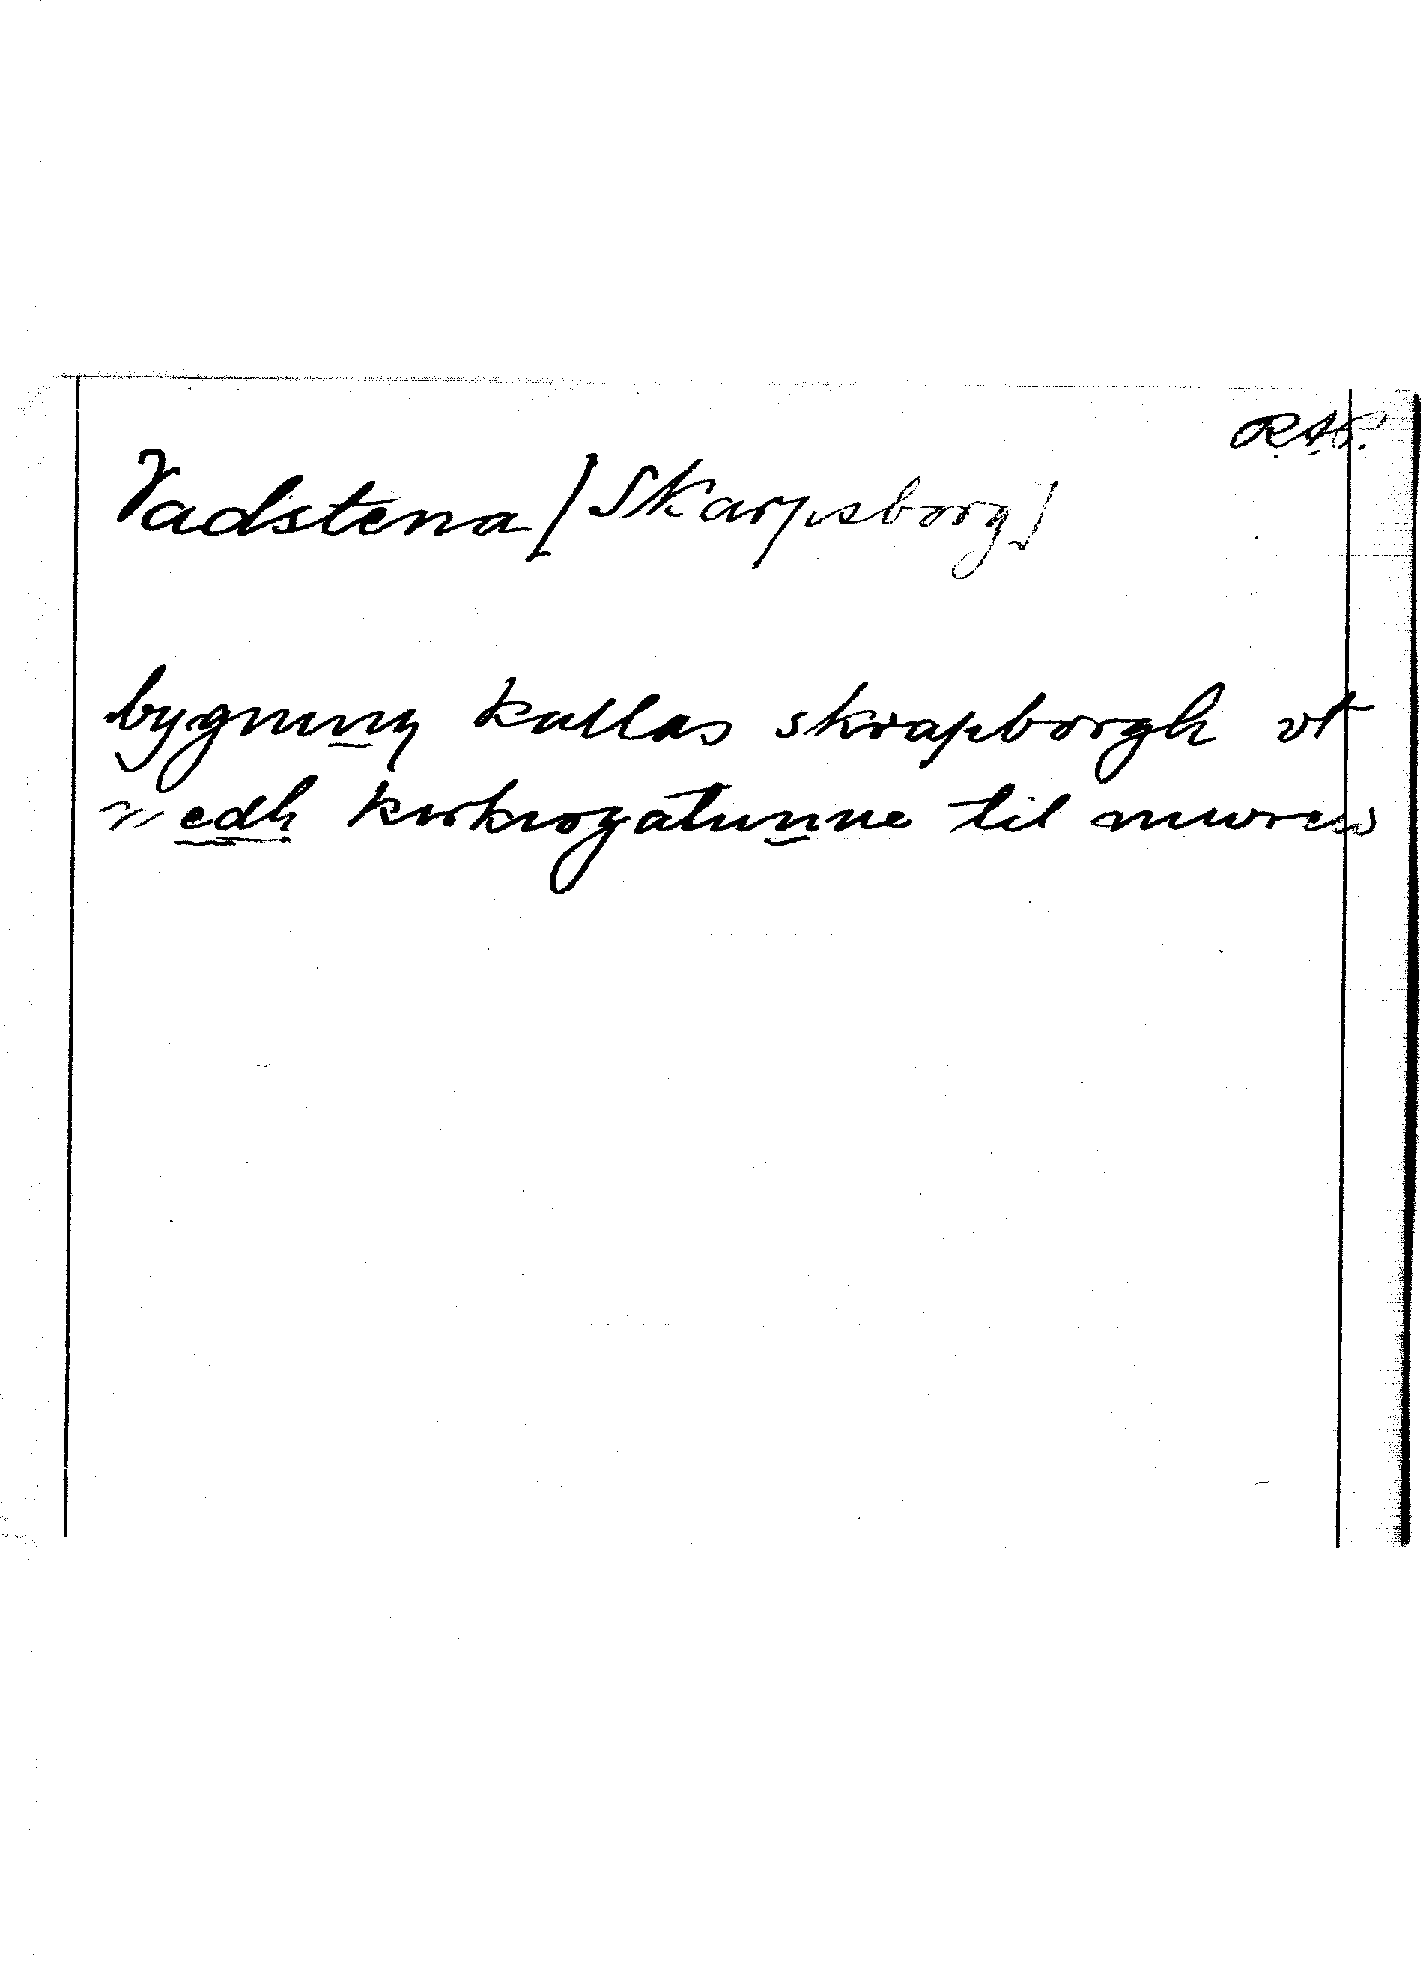 R.A.P.
Vadstena [Skarpsborg]
bygning kallas skrapborgh vt
wedh kirkiogatunne til muren